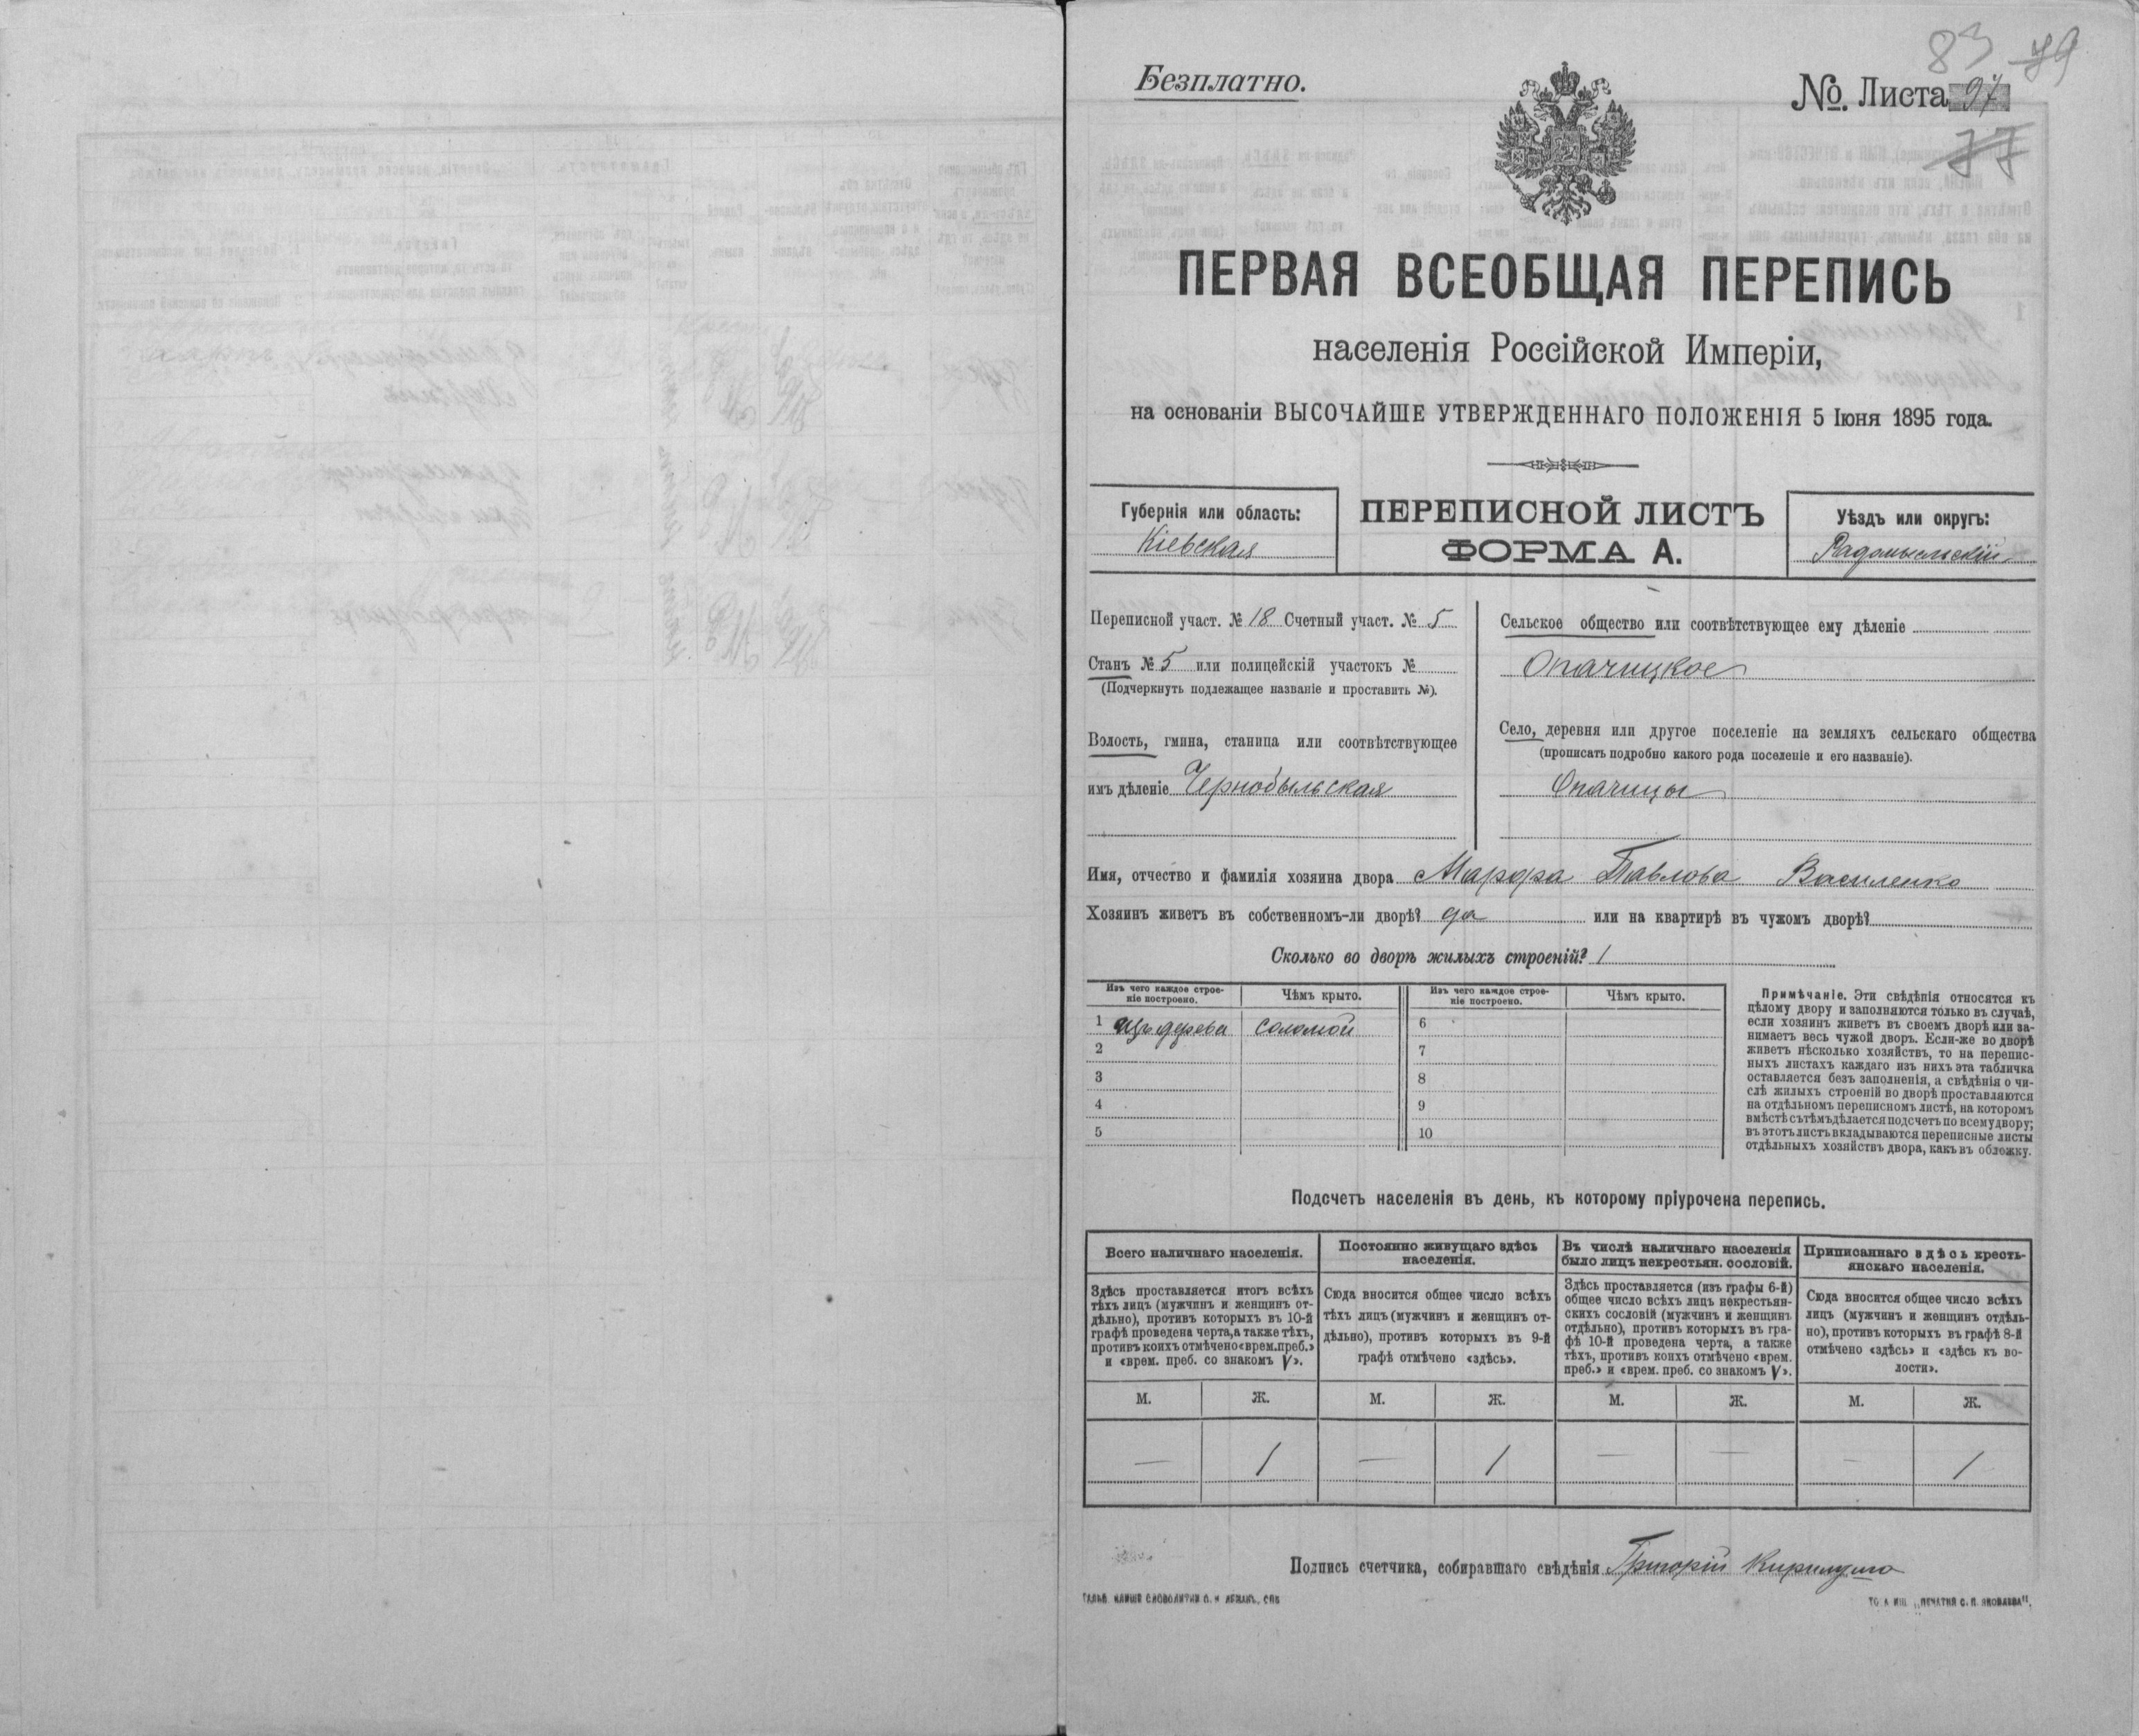 83 79
Безплатно.
№. Листа 97
77
ПЕРВАЯ ВСЕОБЩАЯ ПЕРЕПИСЬ
населенія Россійской Имперіи,
на основаніи ВЫСОЧАЙШЕ УТВЕРЖДЕННАГО ПОЛОЖЕНІЯ 5 Іюня 1895 года.
Губернія или область:
Кіевская
ПЕРЕПИСНОЙ ЛИСТЪ
ФОРМА А.
Уѣздъ или округъ:
Радомысльскій
Переписной участ. № 18 Счетный участ. № 5
Станъ № 5 или полицейскій участокъ №
(Подчеркнуть подлежащее названіе и проставить №).
Волость, гмина, станица или соотвѣтствующее
имъ дѣленіе Чернобыльская
Сельское общество или соотвѣтствующее ему дѣленіе
Опачицкое
Село, деревня или другое поселеніе на земляхъ сельскаго общества
(прописать подробно какого рода поселеніе и его названіе).
Опачицы
Имя, отчество и фамилія хозяина двора Марфа Павлова Василенко
Хозяинъ живетъ въ собственномъ-ли дворѣ? да или на квартирѣ въ чужомъ дворѣ?
Сколько во дворѣ жилыхъ строеній? 1
Изъ чего каждое строе-
ніе построено.
Чѣмъ крыто.
Изъ чего каждое строе-
ніе построено.
Чѣмъ крыто.
1 Изъ дерева соломой 6
2 7
3 8
4 9
5 10
Примѣчаніе. Эти свѣдѣнія относятся къ
цѣлому двору и заполняются только въ случаѣ,
если хозяинъ живетъ въ своемъ дворѣ или за-
нимаетъ весь чужой дворъ. Если-же во дворѣ
живетъ нѣсколько хозяйствъ, то на перепис-
ныхъ листахъ каждаго изъ нихъ эта табличка
оставляется безъ заполненія, а свѣдѣнія о чи-
слѣ жилыхъ строеній во дворѣ проставляются
на отдѣльномъ переписномъ листѣ, на которомъ
вмѣстѣ съ тѣмъ дѣлается подсчетъ по всему двору;
въ этотъ листъ вкладываются переписные листы
отдѣльныхъ хозяйствъ двора, какъ въ обложку.
Подсчетъ населенія въ день, къ которому пріурочена перепись.
Всего наличнаго населенія.
Здѣсь проставляется итогъ всѣхъ
тѣхъ лицъ (мужчинъ и женщинъ от-
дѣльно), противъ которыхъ въ 10-й
графѣ проведена черта, а также тѣхъ,
противъ коихъ отмѣчено «врем. преб.»
и «врем. преб. со знакомъ V».
Постоянно живущаго здѣсь
населенія.
Сюда вносится общее число всѣхъ
тѣхъ лицъ (мужчинъ и женщинъ от-
дѣльно), противъ которыхъ въ 9-й
графѣ отмѣчено «здѣсь».
Въ числѣ наличнаго населенія
было лицъ некрестьян. сословій.
Здѣсь проставляется (изъ графы 6-й)
общее число всѣхъ лицъ некрестьян-
скихъ сословій (мужчинъ и женщинъ
отдѣльно), противъ которыхъ въ гра-
фѣ 10-й проведена черта, а также
тѣхъ, противъ коихъ отмѣчено «врем.
преб.» и «врем. преб. со знакомъ V».
Приписаннаго здѣсь кресть-
янскаго населенія.
Сюда вносится общее число всѣхъ
лицъ (мужчинъ и женщинъ отдѣль-
но), противъ которыхъ въ графѣ 8-й
отмѣчено «здѣсь» и «здѣсь къ во-
лости».
М. Ж. М. Ж. М. Ж. М. Ж.
— 1 — 1 — — — 1
Подпись счетчика, собиравшаго свѣдѣнія Григорій